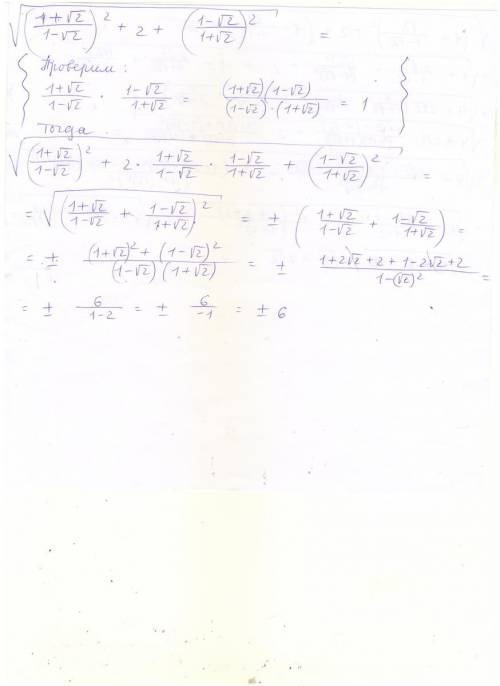 √((1+√2)/(1-√2))² + 2 + ((1-√2)/(1+√2))² =
Проверим:
(1+√2)/(1-√2) · (1-√2)/(1+√2) = (1+√2)(1-√2)/(1-√2)·(1+√2) = 1
Тогда
√((1+√2)/(1-√2))² + 2 · (1+√2)/(1-√2) · (1-√2)/(1+√2) + ((1-√2)/(1+√2))² =
= √((1+√2)/(1-√2) + (1-√2)/(1+√2))² = ± ((1+√2)/(1-√2) + (1-√2)/(1+√2)) =
= ± ((1+√2)² + (1-√2)²)/((1-√2)(1+√2)) = ± (1+2√2+2+1-2√2+2)/(1-(√2)²) =
= ± 6/(1-2) = ± 6/(-1) = ± 6